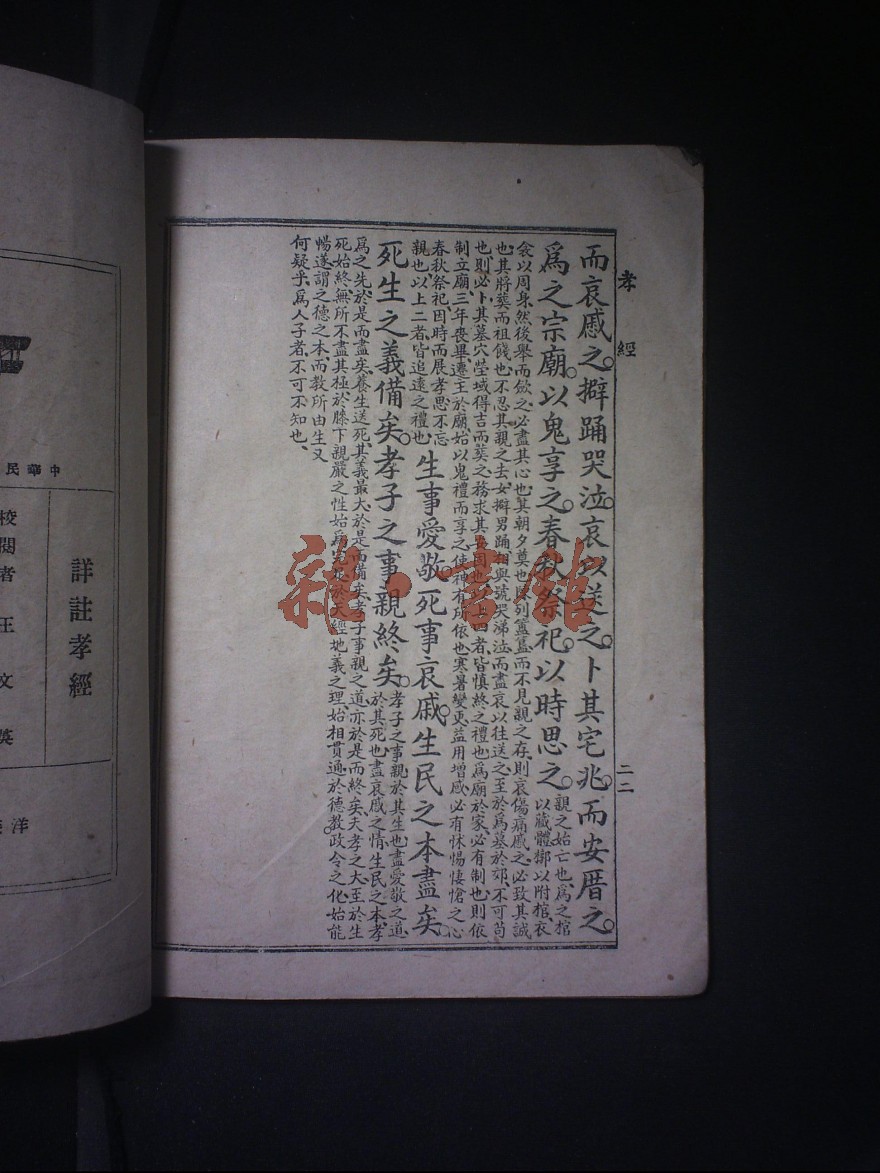 孝經
二二
而哀慼之擗踊哭泣哀以送之卜其宅兆而安厝之
爲之宗廟以鬼享之春秋祭祀以時思之親之始亡也爲之棺
以藏體槨以附棺衣
衾以周身然後舉而斂之必盡其心也其朝夕奠也陳列簠簋而不見親之存則哀傷痛慼之必致其誠
也其將葬而祖餞也不忍其親之去女擗男踊相與號哭涕泣而盡哀以往送之至於爲墓於郊不可苟
也則必卜其墓穴塋域得吉而葬之務求其 固也 四者皆慎終之禮也爲廟於家必有制也則依
制立廟三年喪畢遷主於廟始以鬼禮而享之使神有所依也寒暑變更益用增感必有怵惕悽愴之心
春秋祭祀因時而展孝思不忘
親也以上二者皆追遠之禮也
生事愛敬死事哀慼生民之本盡矣
死生之義備矣孝子之事親終矣孝子之事親於其生也盡愛敬之道
於其死也盡哀慼之情生民之本孝
爲之先於是而盡矣養生送死其義最大於是而備矣孝子事親之道亦於是而終矣夫孝之大至於生
死始終無所不盡其極於膝下親嚴之性始爲 於天經地義之理始相貫通於德教政令之化始能
暢遂謂之德之本而教所由生又
何疑乎爲人子者不可不知也
雜·書館
中華民
詳註孝經
校閱者 王文英
洋